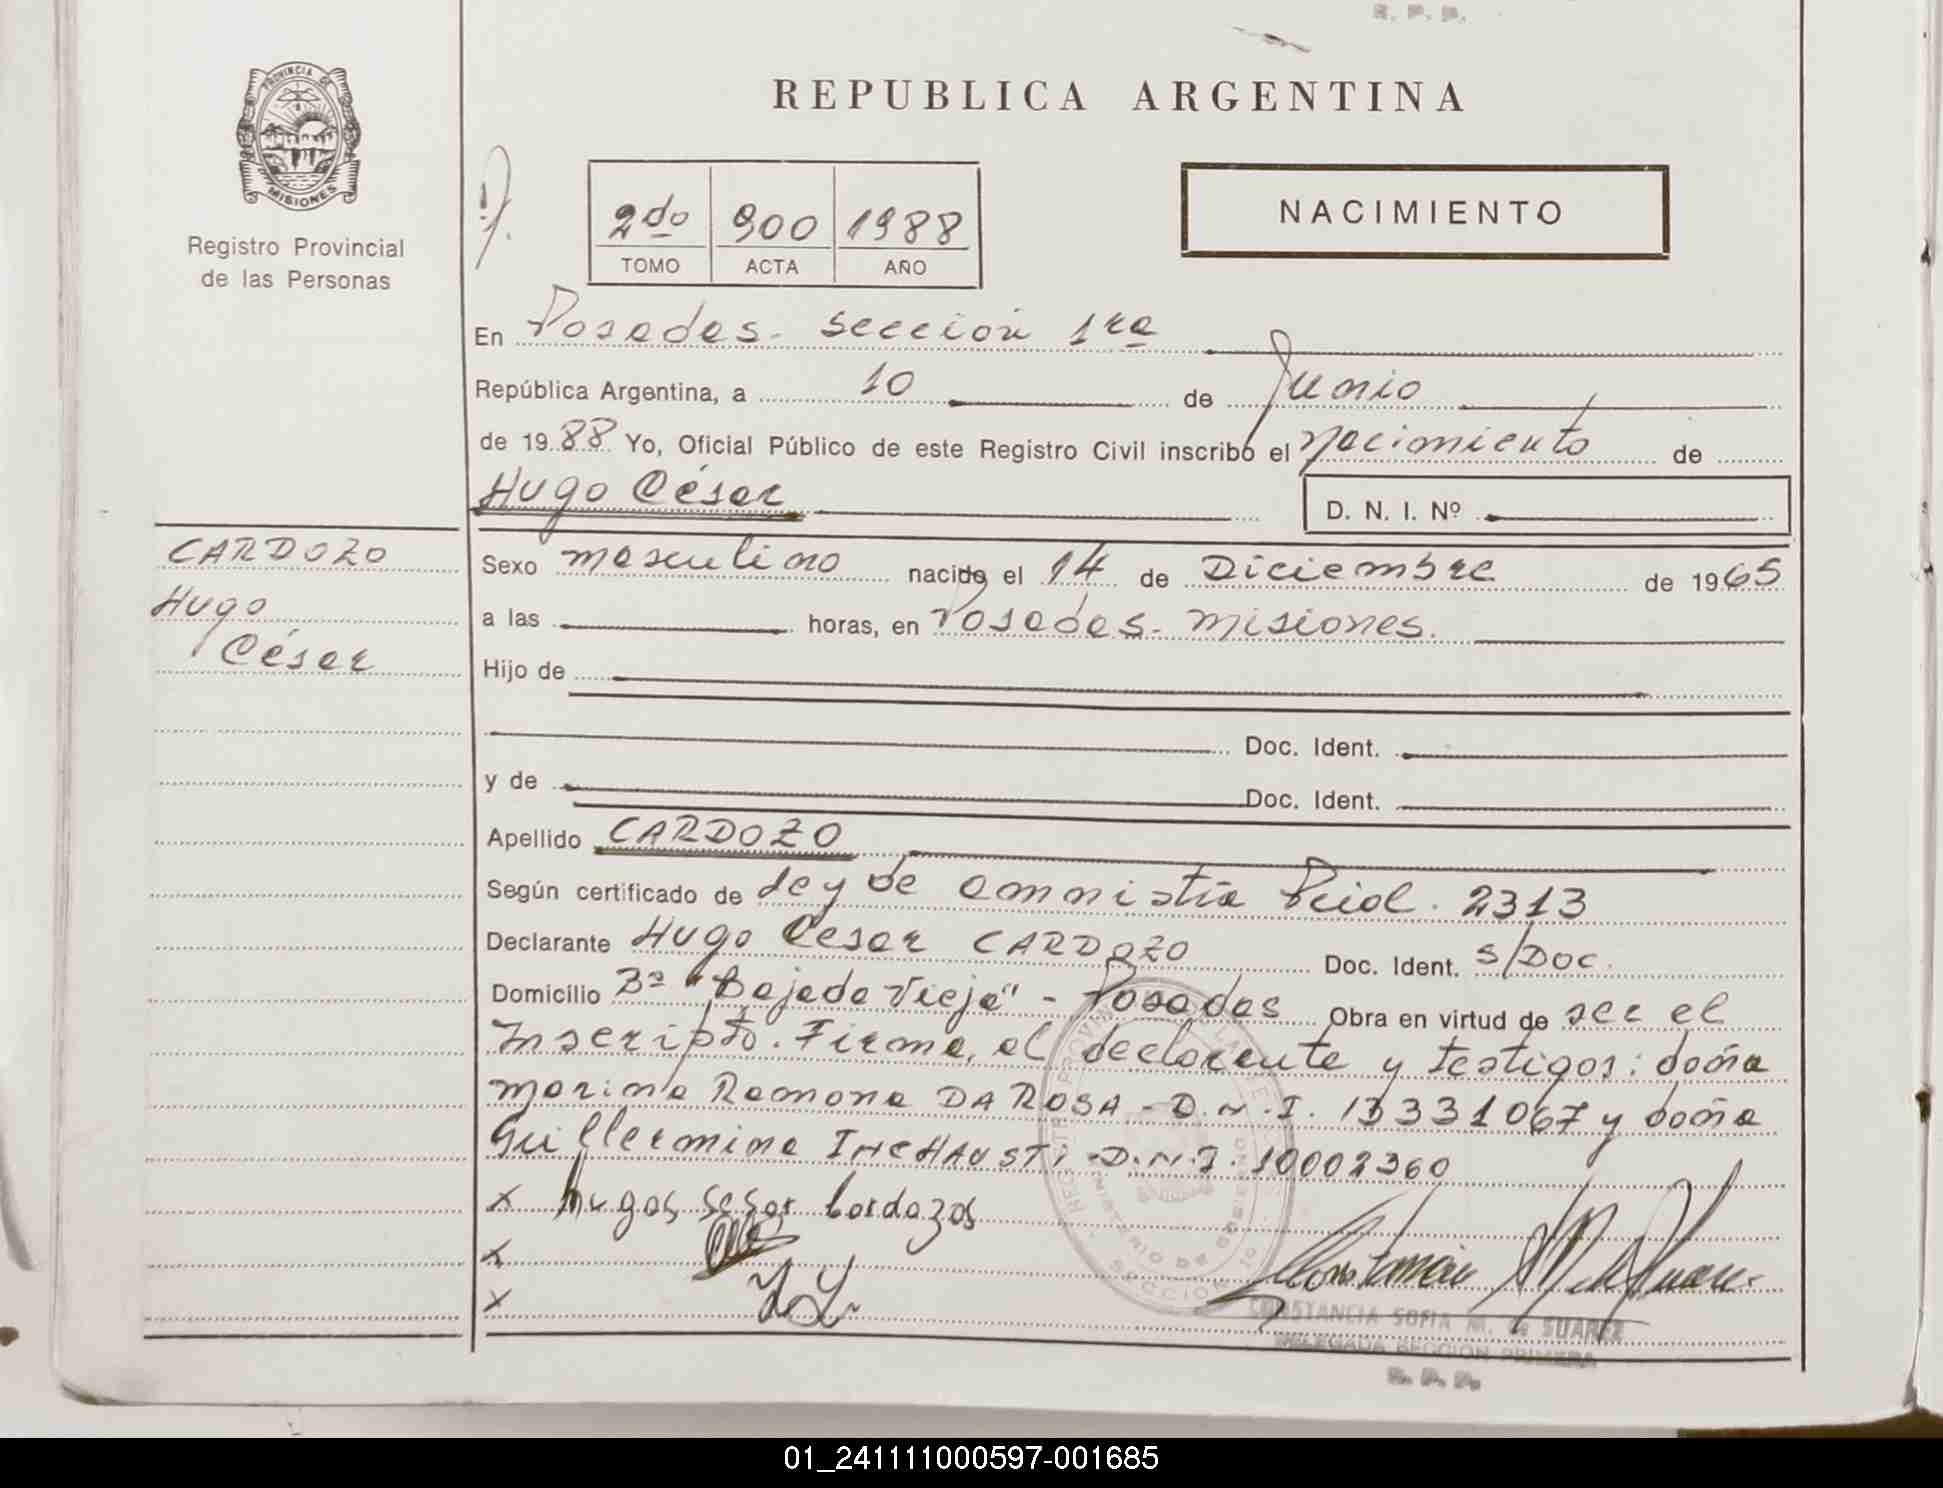 R. P. P.
PROVINCIA DE
MISIONES
Registro Provincial
de las Personas
REPUBLICA ARGENTINA
2do 900 1988
TOMO ACTA AÑO
NACIMIENTO
En Posadas - sección 1ra
República Argentina, a 10 de Junio
de 1988 Yo, Oficial Público de este Registro Civil inscribo el nacimiento de
Hugo César D. N. I. Nº
CARDOZO
Hugo
César
Sexo masculino nacido el 14 de Diciembre de 1965
a las horas, en Posadas - Misiones.
Hijo de
Doc. Ident.
y de Doc. Ident.
Apellido CARDOZO
Según certificado de Ley de amnistía Pcial. 2313
Declarante Hugo Cesar CARDOZO Doc. Ident. S/Doc.
Domicilio Bº "Bajada Vieja" - Posadas Obra en virtud de ser el
Inscripto. Firma, el declarante y testigos: doña
Marina Ramona DA ROSA - D.N.I. 13331067 y doña
Guillermina INCHAUSTI - D.N.I. 10002360
x hugos sesar cordozos
x
x
CONSTANCIA SOFIA M. de SUAREZ
DELEGADA SECCION PRIMERA
R. P. P.
01_241111000597-001685